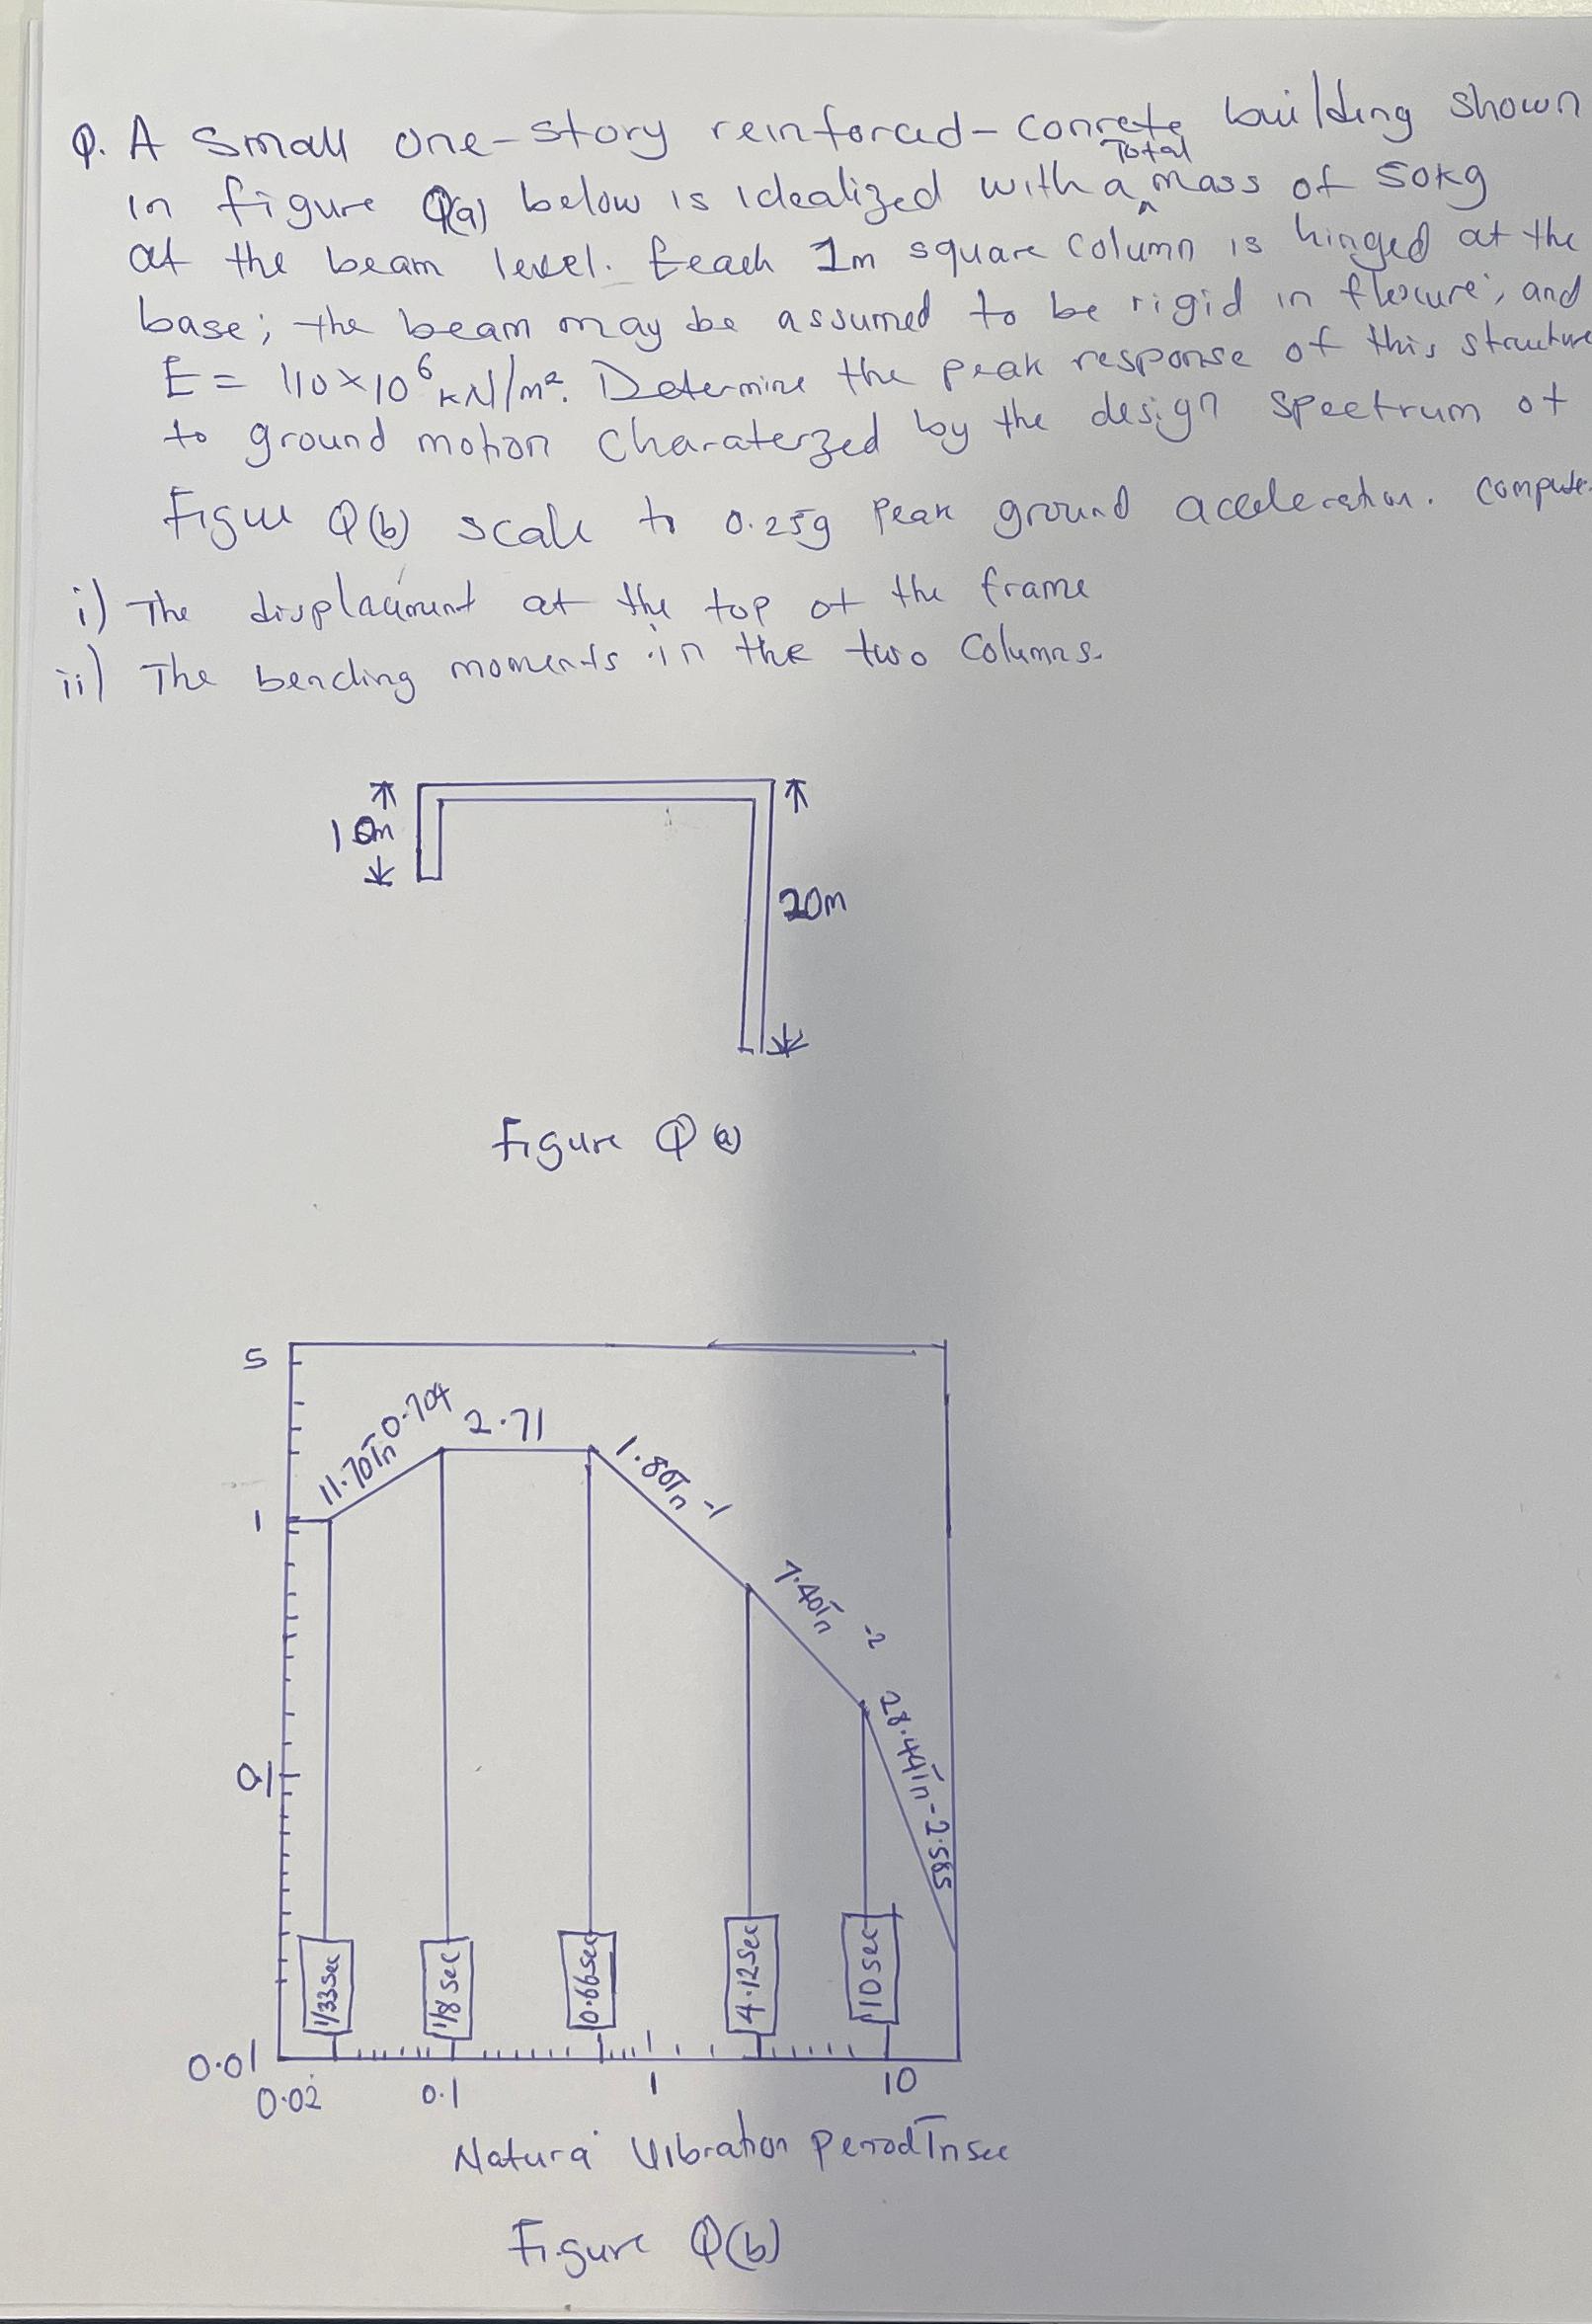 Q. A Small one-story reinforced-conrete building shown
Total
in figure Q(a) below is idealized with a ^ mass of 50kg
at the beam level. Eeach 1m square column is hinged at the
base; the beam may be assumed to be rigid in flexure; and
E = 110×10⁶ kN/m². Determine the peak response of this structure
to ground motion charaterzed by the design spectrum of
Figure Q(b) scale to 0.25g Peak ground acceleration. Compute.
i) The displacement at the top of the frame
ii) The bending moments in the two columns.
10m
20m
Figure Q(a)
5
11.70Tn^0.704
2.71
1.80Tn^-1
1
7.40Tn^-2
28.44Tn^-2.585
0.1
1/33sec
1/8 sec
0.66sec
4.12sec
10sec
0.01
0.02
0.1
1
10
Natura Vibration Period Tn sec
Figure Q(b)